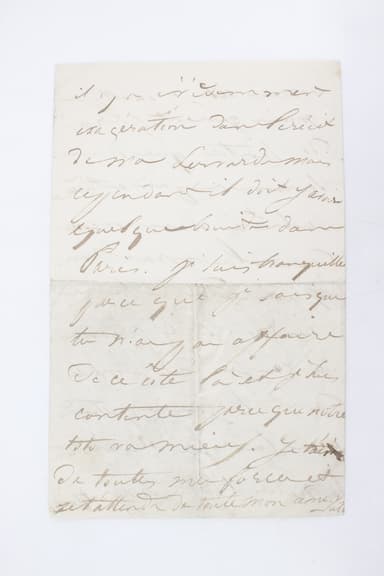 il y a évidemment
exagération dans le récit
de ma
cependant il doit y avoir
quelque bruit dans
Paris. je suis tranquille
parce que je sais que
tu n'as pas affaire
de ce côté là et je suis
contente parce que notre
toto va mieux. Je t'aime
de toutes mes forces et
je t'attends de toute mon âme